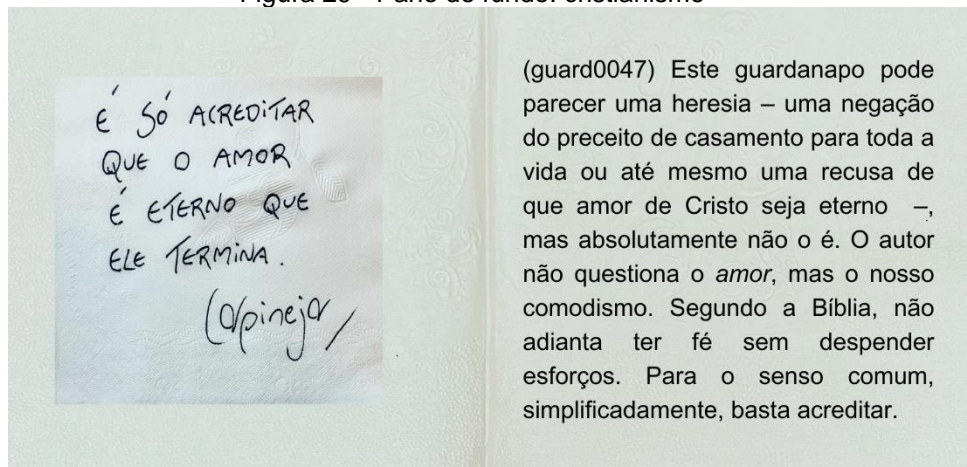 É SÓ ACREDITAR
QUE O AMOR
É ETERNO QUE
ELE TERMINA.
Carpinejar
(guard0047) Este guardanapo pode
parecer uma heresia – uma negação
do preceito de casamento para toda a
vida ou até mesmo uma recusa de
que amor de Cristo seja eterno –,
mas absolutamente não o é. O autor
não questiona o amor, mas o nosso
comodismo. Segundo a Bíblia, não
adianta ter fé sem despender
esforços. Para o senso comum,
simplificadamente, basta acreditar.